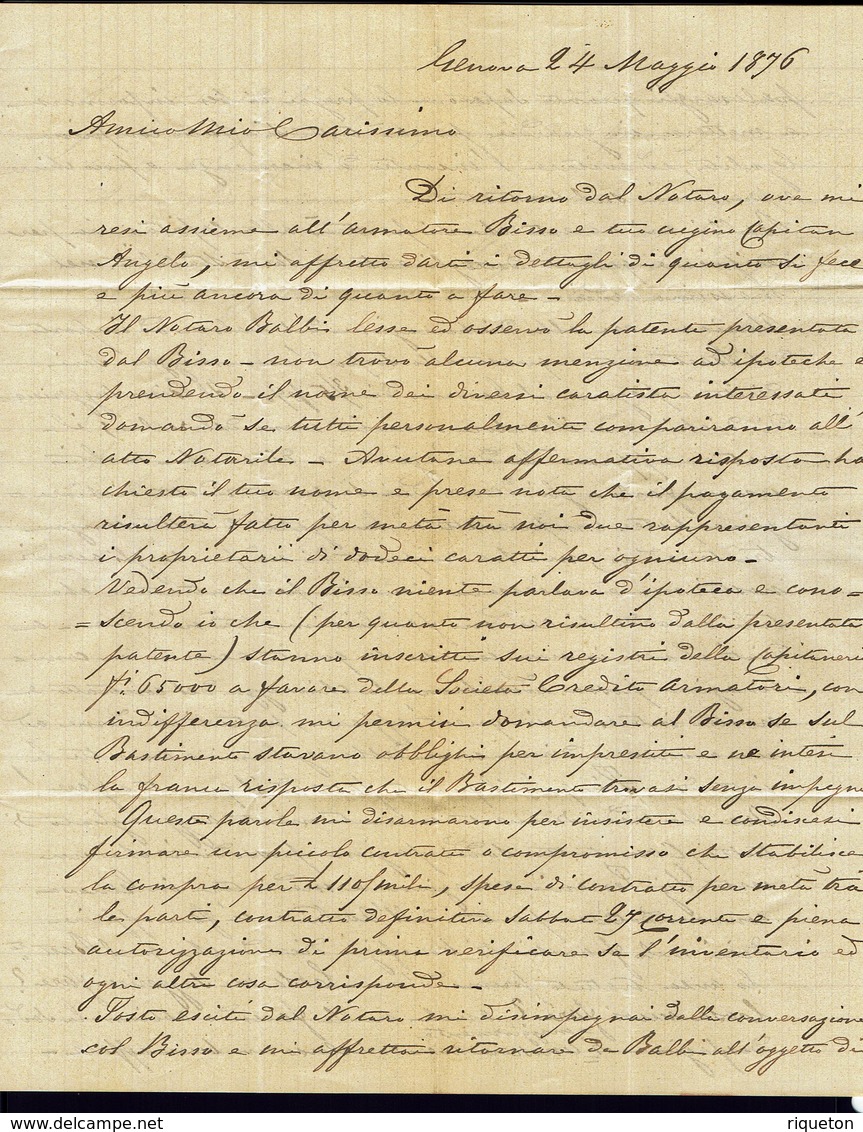 Genova 24 Maggio 1876
Amico Mio Carissimo
Di ritorno dal Notaro, ove mi
resi assieme all'armatore Bisso e tuo cugino Capitan
Angelo, mi affretto darti i dettagli di quanto si fece
e più ancora di quanto a fare -
Il Notaro Balbi lesse ed osservò la patente presentata
dal Bisso - non trovò alcuna menzione ad ipoteche e
prendendo il nome dei diversi caratisti interessati
domandò se tutti personalmente compariranno all'
atto Notarile - Avutane affermativa risposta ha
chiesto il tuo nome e prese nota che il pagamento
risulterà fatto per metà trà noi due rappresentanti
i proprietarii di dodeci caratti per ogniuno -
Vedendo che il Bisso niente parlava d'ipoteca e cono=
=scendo io che (per quanto non risultino dalla presentata
patente) stanno inscritti sui registri della Capitaneri
65000 a favore della Società Credito Armatori, con
indifferenza mi permisi domandare al Bisso se sul
Bastimento stavano obblighi per imprestiti e ne intesi
la franca risposta che il Bastimento trovasi senza impegni
Queste parole mi disarmarono per insistere e condiscesi
firmare un piccolo contratto o compromisso che stabilisce
la compra per £ 110/mila, spese di contratto per metà trà
le parti, contratto definitivo Sabbato 27 corrente e piena
autorizzazione di prima verificare se l'inventario ed
ogni altra cosa corrisponde -
Tosto escito dal Notaro mi disimpegnai dalla conversazione
col Bisso e mi affrettai ritornare da Balbi all'oggetto di
delcampe.net
riqueton